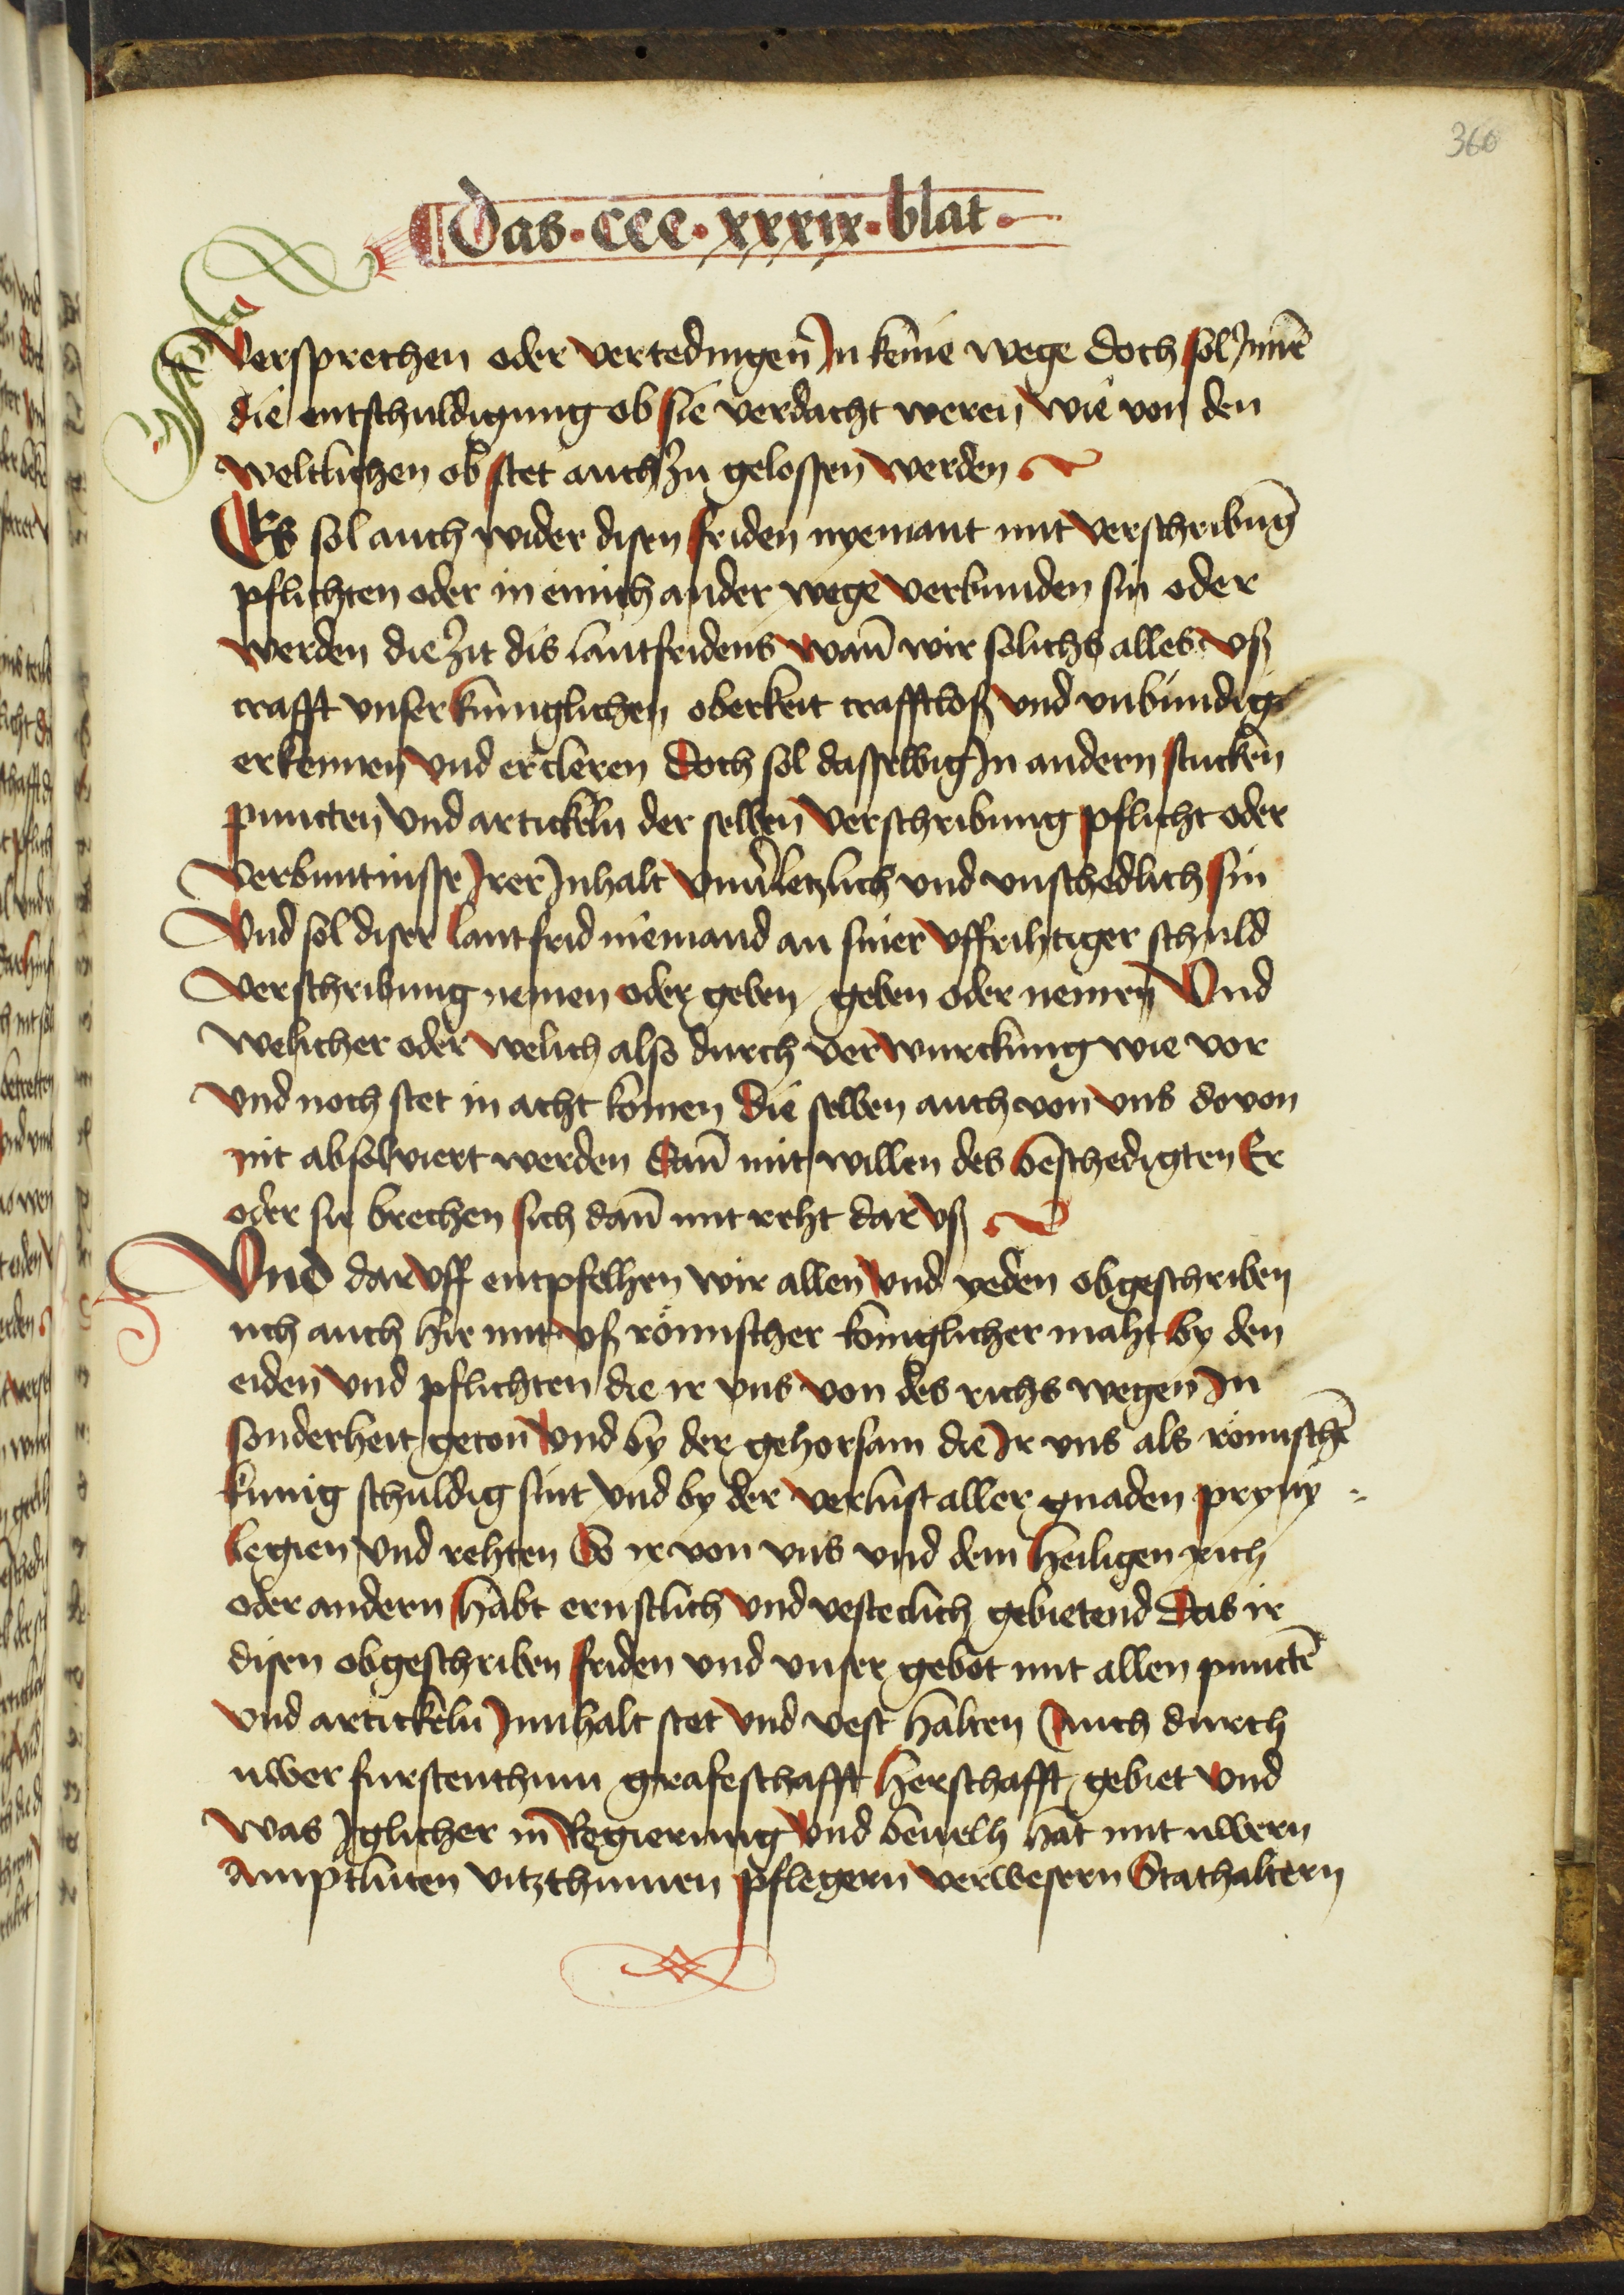 360
Das · ccc · xxxix · blat ·
Versprechen oder vertedingen Jn keine wege doch sol Jnnē
die entschuldigung ob sie verdacht weren wie von den
weltlichen ob stet auch zu gelossen werden
Es sol auch wider disen friden nyemant mit verschribūg
pflichten oder in einich ander wege verbunden sin oder
werden die zit dis lantfridens wañ wir solichs alles vß
crafft vnser kuniglichen oberkeit crafftloß vnd vnbundig
erkennen vnd ercleren doch sol dasselbig Jn andern stucken
puncten vnd artickeln der selben verschribung pflicht oder
verbuntnisse Jrer Jnhalt vnuerletzlich vnd vnschedlich sin
Vnd sol diser lantfrid niemand an siner vffrihtiger schuld
verschribung nemen oder geben geben oder nemen Vnd
welicher oder welich also durch verwurckung wie vor
vnd noch stet in acht komen die selben auch von vns dovon
nit absolviert werden dañ mit willen des beschedigten Er
oder sie brechen sich dañ mit reht dar vß
Vnd dar vff entpfelhen wir allen vnd yeden obgeschriben
uch auch hie mit vß römischer koniglicher maht by den
eiden vnd pflichten die ir vns von des richs wegen Jn
sonderheit geton vnd by der gehorsam die Jr vns als römischē
kunig schuldig sint vnd by der verlust aller gnaden pryuy
legien vnd rehten So ir von vns vnd dem heiligen rich
oder andern habt ernstlich vnd vesteclich gebietend das ir
disen obgeschriben friden vnd vnser gebot mit allen punctē
vnd artickeln Jnnhalt stet vnd vest halten Auch durch
uwer furstenthum grafeschafft herschafft gebiet vnd
was Jglicher in Regierung vnd beuelh hat mit uwern
amptluten vitzthumen pflegern verwesern Stathaltern